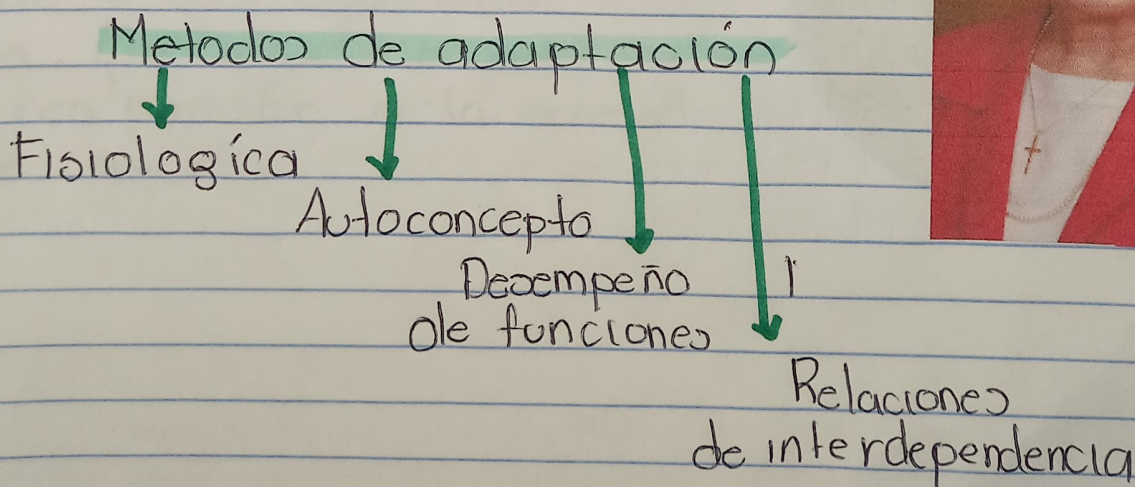 Metodos de adaptación
Fisiologíca
Autoconcepto
Desempeño
de funciones
Relaciones
de interdependencia